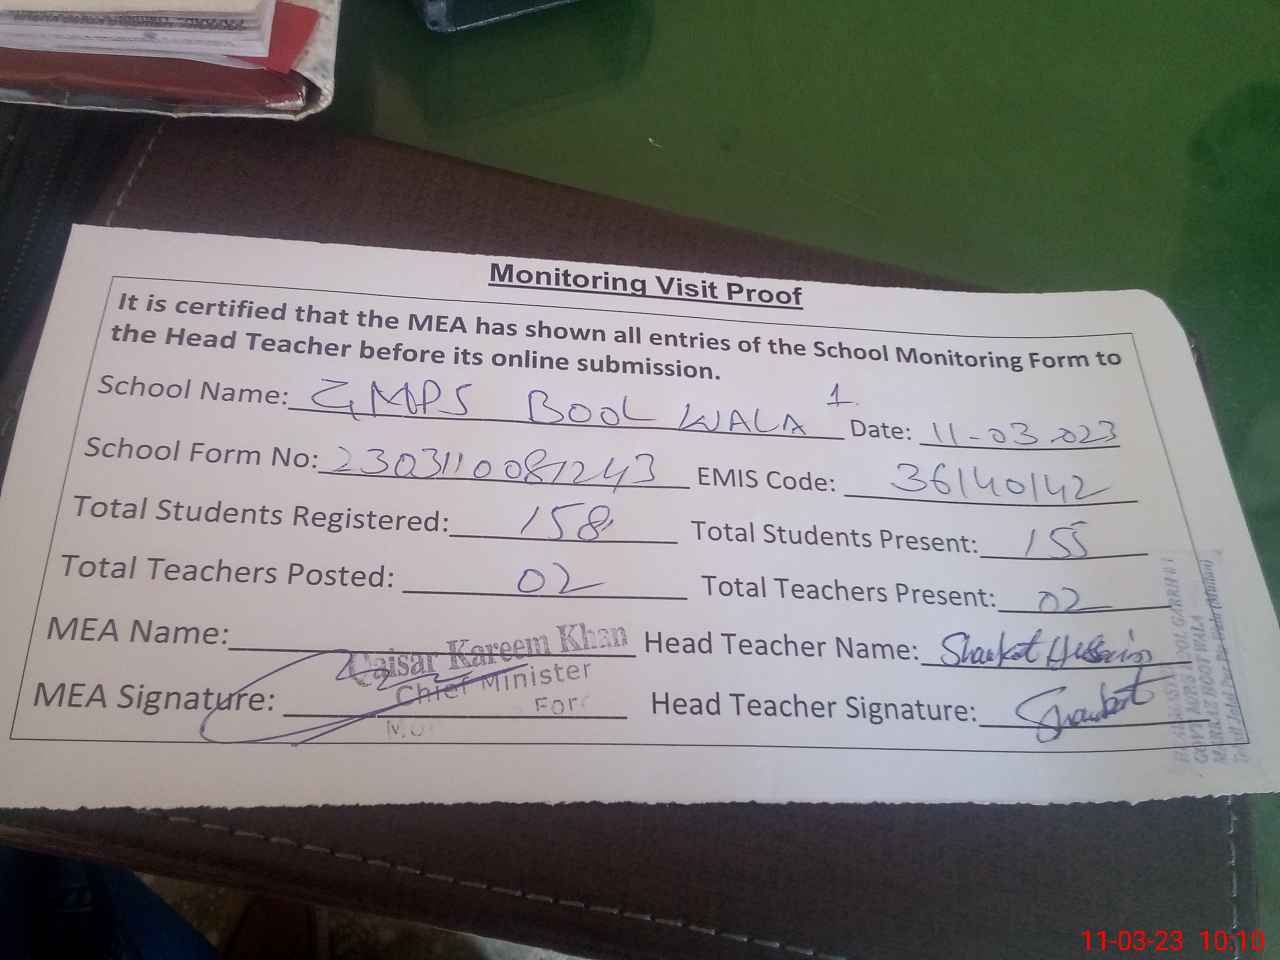 Monitoring Visit Proof
It is certified that the MEA has shown all entries of the School Monitoring Form to
the Head Teacher before its online submission.
School Name: GMPS BOOL WALA 1 Date: 11-03.023
School Form No: 2303110081243 EMIS Code: 36140142
Total Students Registered: 158 Total Students Present: 155
Total Teachers Posted: 02 Total Teachers Present: 02
MEA Name: Qaisar Kareem Khan Head Teacher Name: Shaukat Hussain
Chief Minister
MEA Signature: Head Teacher Signature: Shaukat
11-03-23 10:10